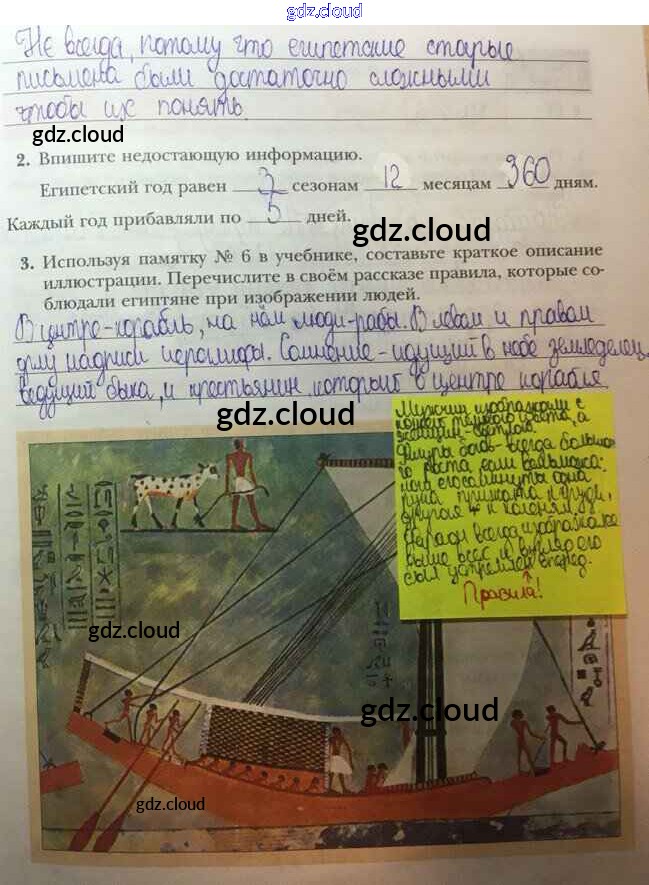 gdz.cloud
Не всегда, потому что египетские старые
письмена были достаточно сложными
чтобы их понять
gdz.cloud
2. Впишите недостающую информацию.
Египетский год равен 3 сезонам 12 месяцам 360 дням.
Каждый год прибавляли по 5 дней.
gdz.cloud
3. Используя памятку № 6 в учебнике, составьте краткое описание
иллюстрации. Перечислите в своём рассказе правила, которые со-
блюдали египтяне при изображении людей.
В центре-корабль, на нём люди-рабы. В левом и правом
углу надписи иероглифы. идущий в небе земледелец,
ведущий быка, и крестьянин, который в центре корабля
gdz.cloud
Мужчин изображали с
кожей тёмного цвета, а
женщин-светлого.
Фигуры богов-всегда большо-
го роста, если вельможа-
одна
рука прижата к груди,
другая к коленям.
Фараон всегда изображался
выше всех и взгляд его
был устремлён вперёд.
Правила!
gdz.cloud
gdz.cloud
gdz.cloud